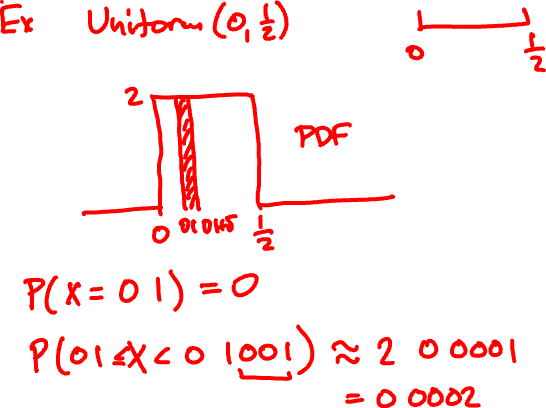 Ex Uniform (0, 1/2)
0 1/2
2
PDF
0 1/2
P(X = 0 1) = 0
P(0 1 ≤ X < 0 1001) ≈ 2 0 0001
= 0 0002